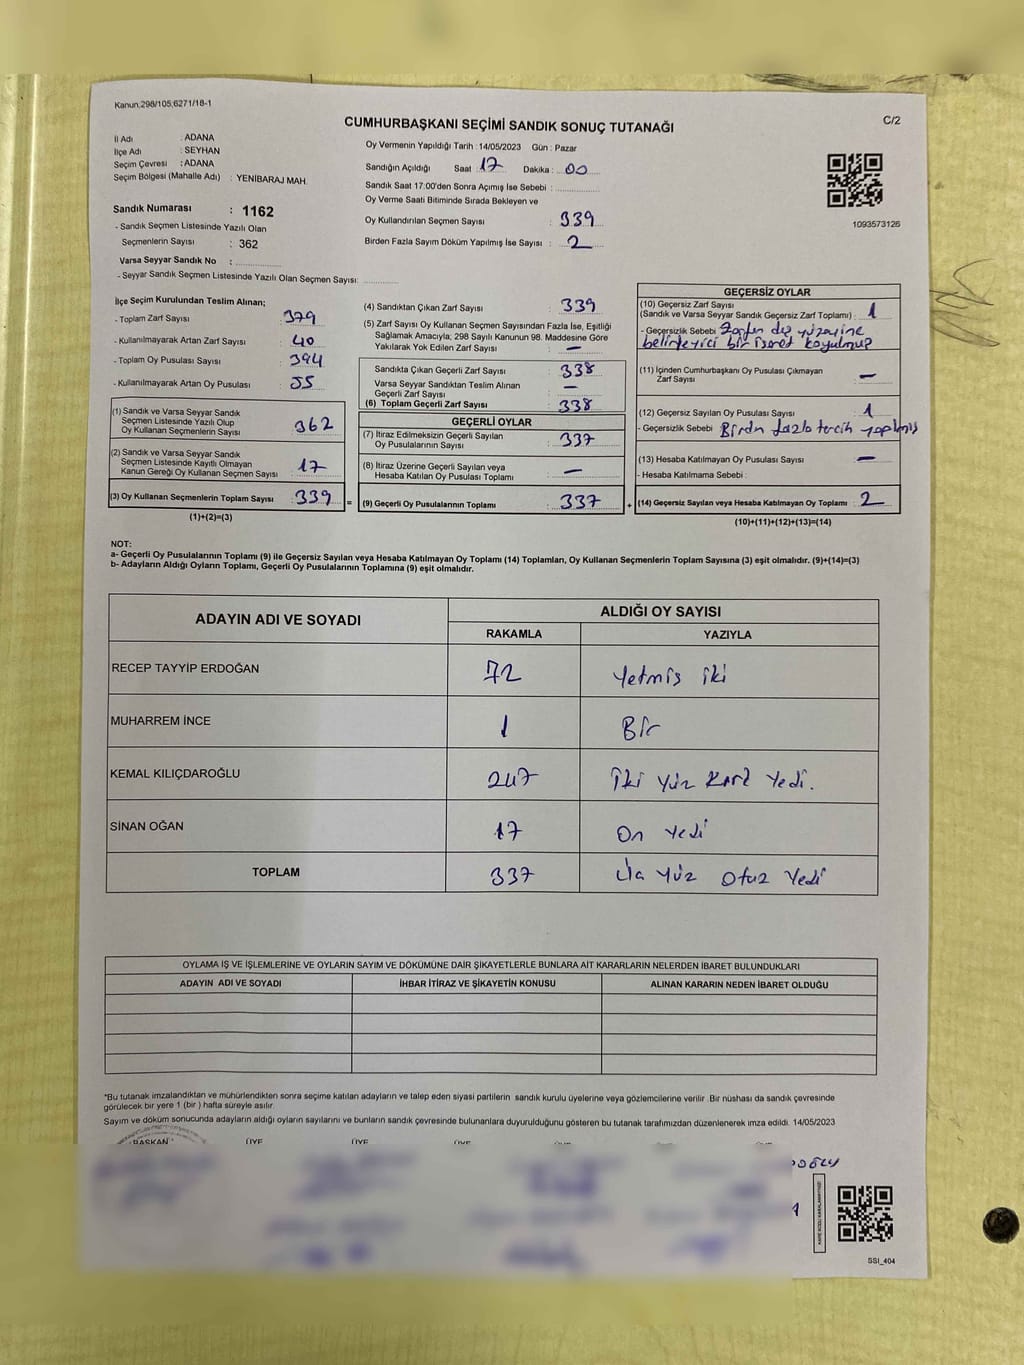 Kanun,298/105,6271/18-1
C/2
CUMHURBAŞKANI SEÇİMİ SANDIK SONUÇ TUTANAĞI
İl Adı : ADANA
İlçe Adı : SEYHAN
Seçim Çevresi : ADANA
Seçim Bölgesi (Mahalle Adı) : YENİBARAJ MAH.
Sandık Numarası : 1162
- Sandık Seçmen Listesinde Yazılı Olan
Seçmenlerin Sayısı : 362
Varsa Seyyar Sandık No :
- Seyyar Sandık Seçmen Listesinde Yazılı Olan Seçmen Sayısı:
Oy Vermenin Yapıldığı Tarih : 14/05/2023 Gün : Pazar
Sandığın Açıldığı Saat : 17 Dakika : 00
Sandık Saat 17:00'den Sonra Açımış İse Sebebi :
Oy Verme Saati Bitiminde Sırada Bekleyen ve
Oy Kullandırılan Seçmen Sayısı : 339
Birden Fazla Sayım Döküm Yapılmış İse Sayısı : 2
1093573126
İlçe Seçim Kurulundan Teslim Alınan;
- Toplam Zarf Sayısı : 379
- Kullanılmayarak Artan Zarf Sayısı : 40
- Toplam Oy Pusulası Sayısı : 394
- Kullanılmayarak Artan Oy Pusulası : 55
(1) Sandık ve Varsa Seyyar Sandık
Seçmen Listesinde Yazılı Olup
Oy Kullanan Seçmenlerin Sayısı : 362
(2) Sandık ve Varsa Seyyar Sandık
Seçmen Listesinde Kayıtlı Olmayan
Kanun Gereği Oy Kullanan Seçmen Sayısı : 17
(3) Oy Kullanan Seçmenlerin Toplam Sayısı : 339 =
(1)+(2)=(3)
(4) Sandıktan Çıkan Zarf Sayısı : 339
(5) Zarf Sayısı Oy Kullanan Seçmen Sayısından Fazla İse, Eşitliği
Sağlamak Amacıyla; 298 Sayılı Kanunun 98. Maddesine Göre
Yakılarak Yok Edilen Zarf Sayısı : —
Sandıkta Çıkan Geçerli Zarf Sayısı : 338
Varsa Seyyar Sandıktan Teslim Alınan
Geçerli Zarf Sayısı : —
(6) Toplam Geçerli Zarf Sayısı : 338
GEÇERLİ OYLAR
(7) İtiraz Edilmeksizin Geçerli Sayılan
Oy Pusulalarının Sayısı : 337
(8) İtiraz Üzerine Geçerli Sayılan veya
Hesaba Katılan Oy Pusulası Toplamı : —
(9) Geçerli Oy Pusulalarının Toplamı : 337 +
GEÇERSİZ OYLAR
(10) Geçersiz Zarf Sayısı
(Sandık ve Varsa Seyyar Sandık Geçersiz Zarf Toplamı) : 1
- Geçersizlik Sebebi : Zarfın dış yüzeyine
belirleyici bir işaret koyulmuş
(11) İçinden Cumhurbaşkanı Oy Pusulası Çıkmayan
Zarf Sayısı : —
(12) Geçersiz Sayılan Oy Pusulası Sayısı : 1
- Geçersizlik Sebebi : Birden fazla tercih yapılmış
(13) Hesaba Katılmayan Oy Pusulası Sayısı : —
- Hesaba Katılmama Sebebi :
(14) Geçersiz Sayılan veya Hesaba Katılmayan Oy Toplamı : 2
(10)+(11)+(12)+(13)=(14)
NOT:
a- Geçerli Oy Pusulalarının Toplamı (9) ile Geçersiz Sayılan veya Hesaba Katılmayan Oy Toplamı (14) Toplamları, Oy Kullanan Seçmenlerin Toplam Sayısına (3) eşit olmalıdır. (9)+(14)=(3)
b- Adayların Aldığı Oyların Toplamı, Geçerli Oy Pusulalarının Toplamına (9) eşit olmalıdır.
ADAYIN ADI VE SOYADI ALDIĞI OY SAYISI
RAKAMLA YAZIYLA
RECEP TAYYİP ERDOĞAN 72 Yetmiş iki
MUHARREM İNCE 1 Bir
KEMAL KILIÇDAROĞLU 247 İki Yüz Kırk Yedi.
SİNAN OĞAN 17 On Yedi
TOPLAM 337 Üç Yüz Otuz Yedi
OYLAMA İŞ VE İŞLEMLERİNE VE OYLARIN SAYIM VE DÖKÜMÜNE DAİR ŞİKAYETLERLE BUNLARA AİT KARARLARIN NELERDEN İBARET BULUNDUKLARI
ADAYIN ADI VE SOYADI İHBAR İTİRAZ VE ŞİKAYETİN KONUSU ALINAN KARARIN NEDEN İBARET OLDUĞU
*Bu tutanak imzalandıktan ve mühürlendikten sonra seçime katılan adayların ve talep eden siyasi partilerin sandık kurulu üyelerine veya gözlemcilerine verilir. Bir nüshası da sandık çevresinde
görülecek bir yere 1 (bir) hafta süreyle asılır.
Sayım ve döküm sonucunda adayların aldığı oyların sayılarını ve bunların sandık çevresinde bulunanlara duyurulduğunu gösteren bu tutanak tarafımızdan düzenlenerek imza edildi. 14/05/2023
BAŞKAN ÜYE ÜYE ÜYE
SSI_404